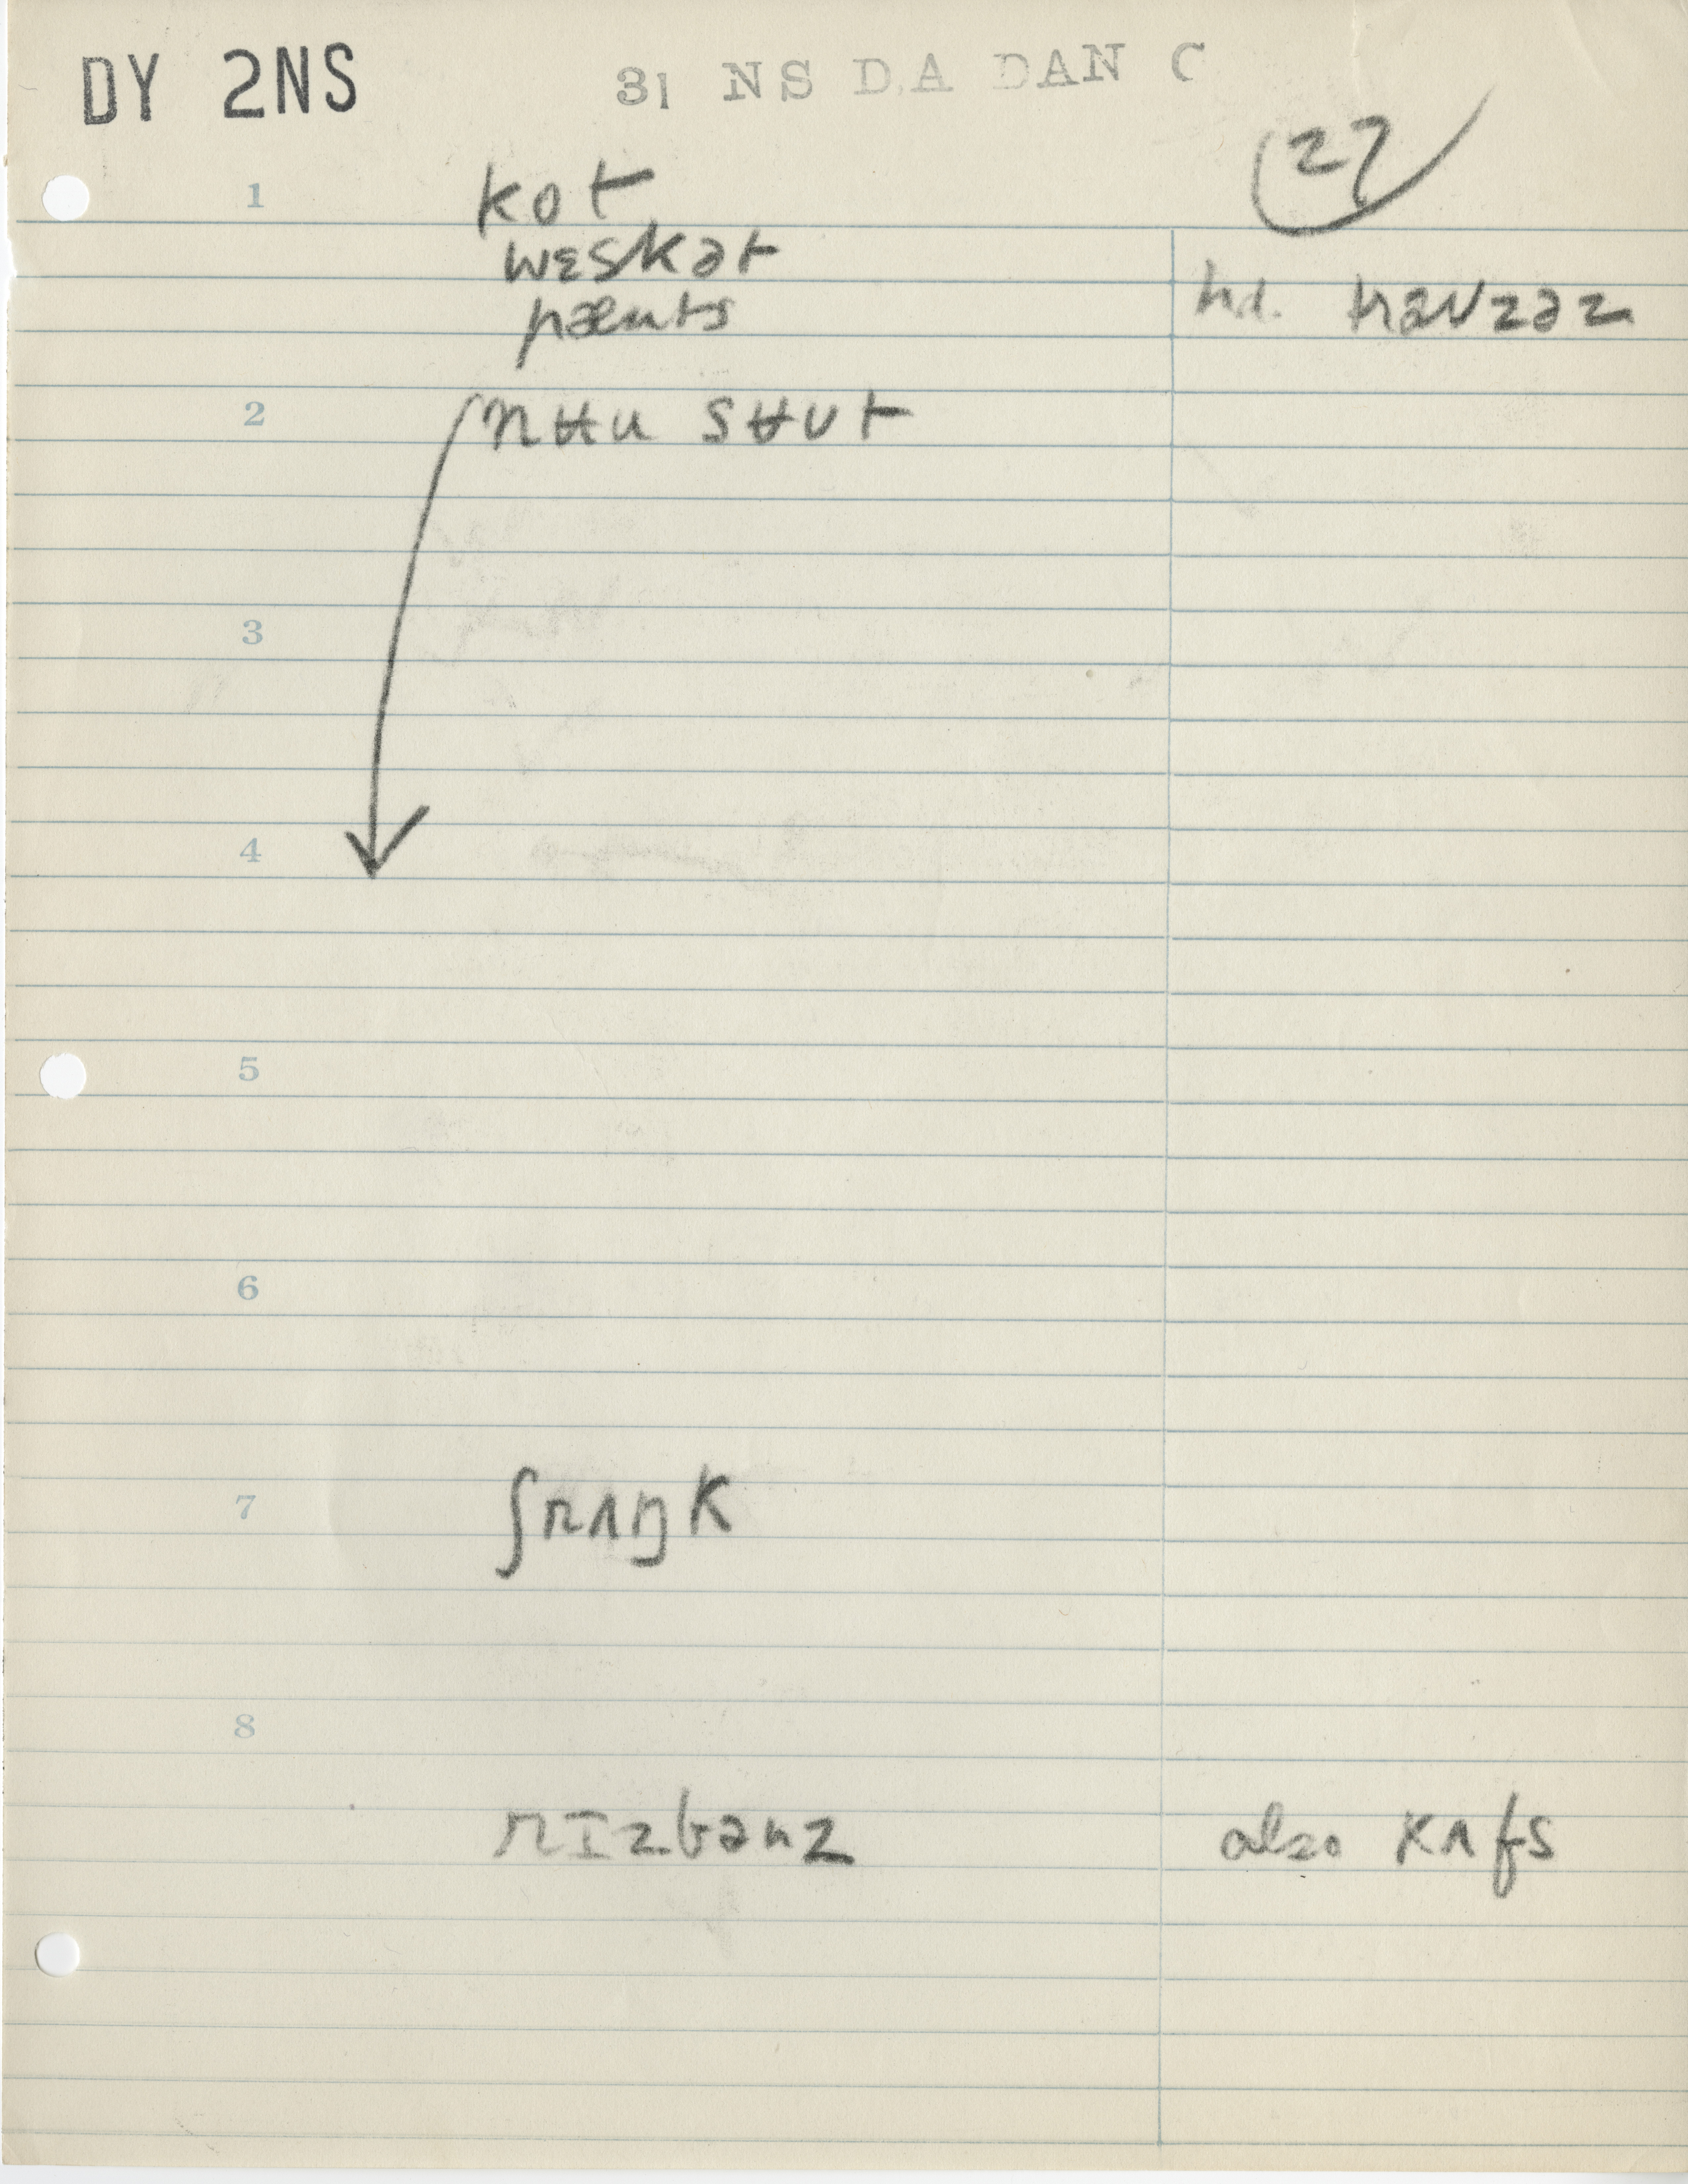 DY 2NS 31 NS D.A DAN C
27
1 kot
wɛskət
pænts hd. traʊzəz
2 nʉu sʉut
3
4
5
6
7 ʃrʌŋk
8
rɪzbənz also kʌfs